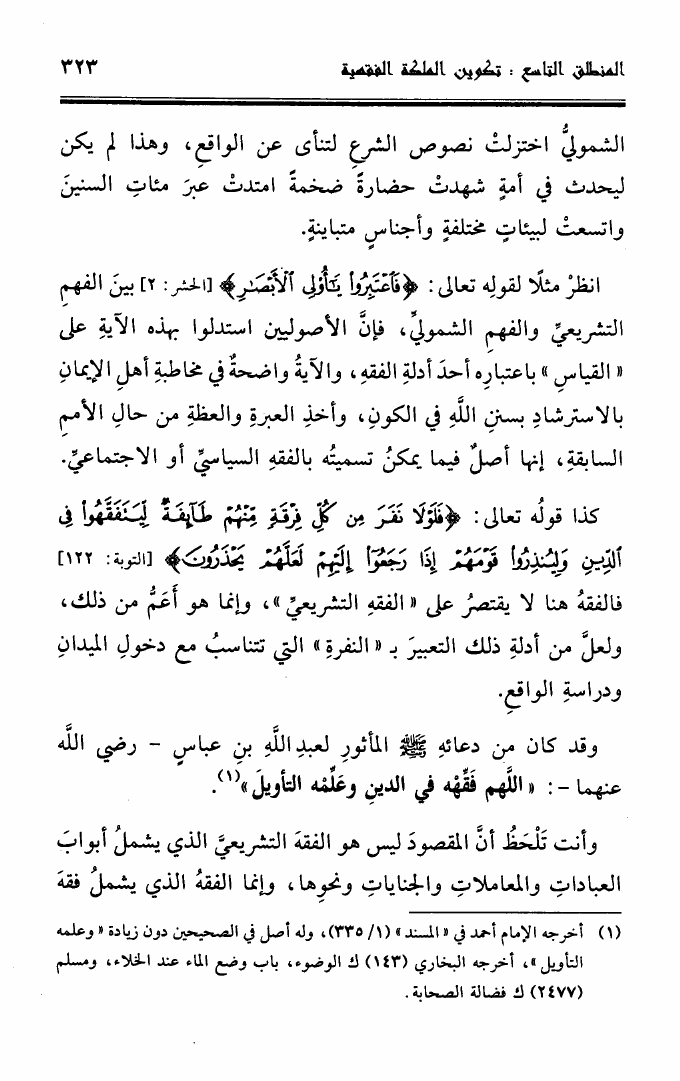 المنطلق التاسع : تكوين الملكة الفقهية ٣٢٣
الشموليُّ اختزلتْ نصوص الشرعِ لتنأى عن الواقعِ، وهذا لم يكن
ليحدث في أمةٍ شهدتْ حضارةً ضخمةً امتدتْ عبرَ مئاتِ السنينَ
واتسعتْ لبيئاتٍ مختلفةٍ وأجناسٍ متباينةٍ.
انظرْ مثلًا لقولِه تعالى: ﴿فَٱعْتَبِرُوا۟ يَـٰٓأُو۟لِى ٱلْأَبْصَـٰرِ﴾ [الحشر: ٢] بينَ الفهمِ
التشريعيِّ والفهمِ الشموليِّ، فإنَّ الأصوليين استدلوا بهذه الآيةِ على
«القياسِ» باعتبارِه أحدَ أدلةِ الفقهِ، والآيةُ واضحةٌ في مخاطبةِ أهلِ الإيمانِ
بالاسترشادِ بسننِ اللَّهِ في الكونِ، وأخذِ العبرةِ والعظةِ من حالِ الأممِ
السابقةِ، إنها أصلٌ فيما يمكنُ تسميتُه بالفقهِ السياسيِّ أو الاجتماعيِّ.
كذا قولُه تعالى: ﴿فَلَوْلَا نَفَرَ مِن كُلِّ فِرْقَةٍ مِّنْهُمْ طَآئِفَةٌ لِّيَتَفَقَّهُوا۟ فِى
ٱلدِّينِ وَلِيُنذِرُوا۟ قَوْمَهُمْ إِذَا رَجَعُوٓا۟ إِلَيْهِمْ لَعَلَّهُمْ يَحْذَرُونَ﴾ [التوبة: ١٢٢]
فالفقهُ هنا لا يقتصرُ على «الفقهِ التشريعيِّ»، وإنما هو أَعَمُّ من ذلك،
ولعلَّ من أدلةِ ذلك التعبيرَ بـ «النفرةِ» التي تتناسبُ مع دخولِ الميدانِ
ودراسةِ الواقعِ.
وقد كان من دعائهِ ﷺ المأثورِ لعبدِاللَّهِ بنِ عباسٍ – رضي اللَّه
عنهما –: «اللَّهم فَقِّهْه في الدينِ وعَلِّمْه التأويلَ»(١).
وأنت تَلْحَظُ أنَّ المقصودَ ليس هو الفقهَ التشريعيَّ الذي يشملُ أبوابَ
العباداتِ والمعاملاتِ والجناياتِ ونحوِها، وإنما الفقهُ الذي يشملُ فقهَ
(١) أخرجه الإمام أحمد في «المسند» (١/ ٣٣٥)، وله أصل في الصحيحين دون زيادة «وعلمه
التأويل»، أخرجه البخاري (١٤٣) ك الوضوء، باب وضع الماء عند الخلاء، ومسلم
(٢٤٧٧) ك فضالة الصحابة.